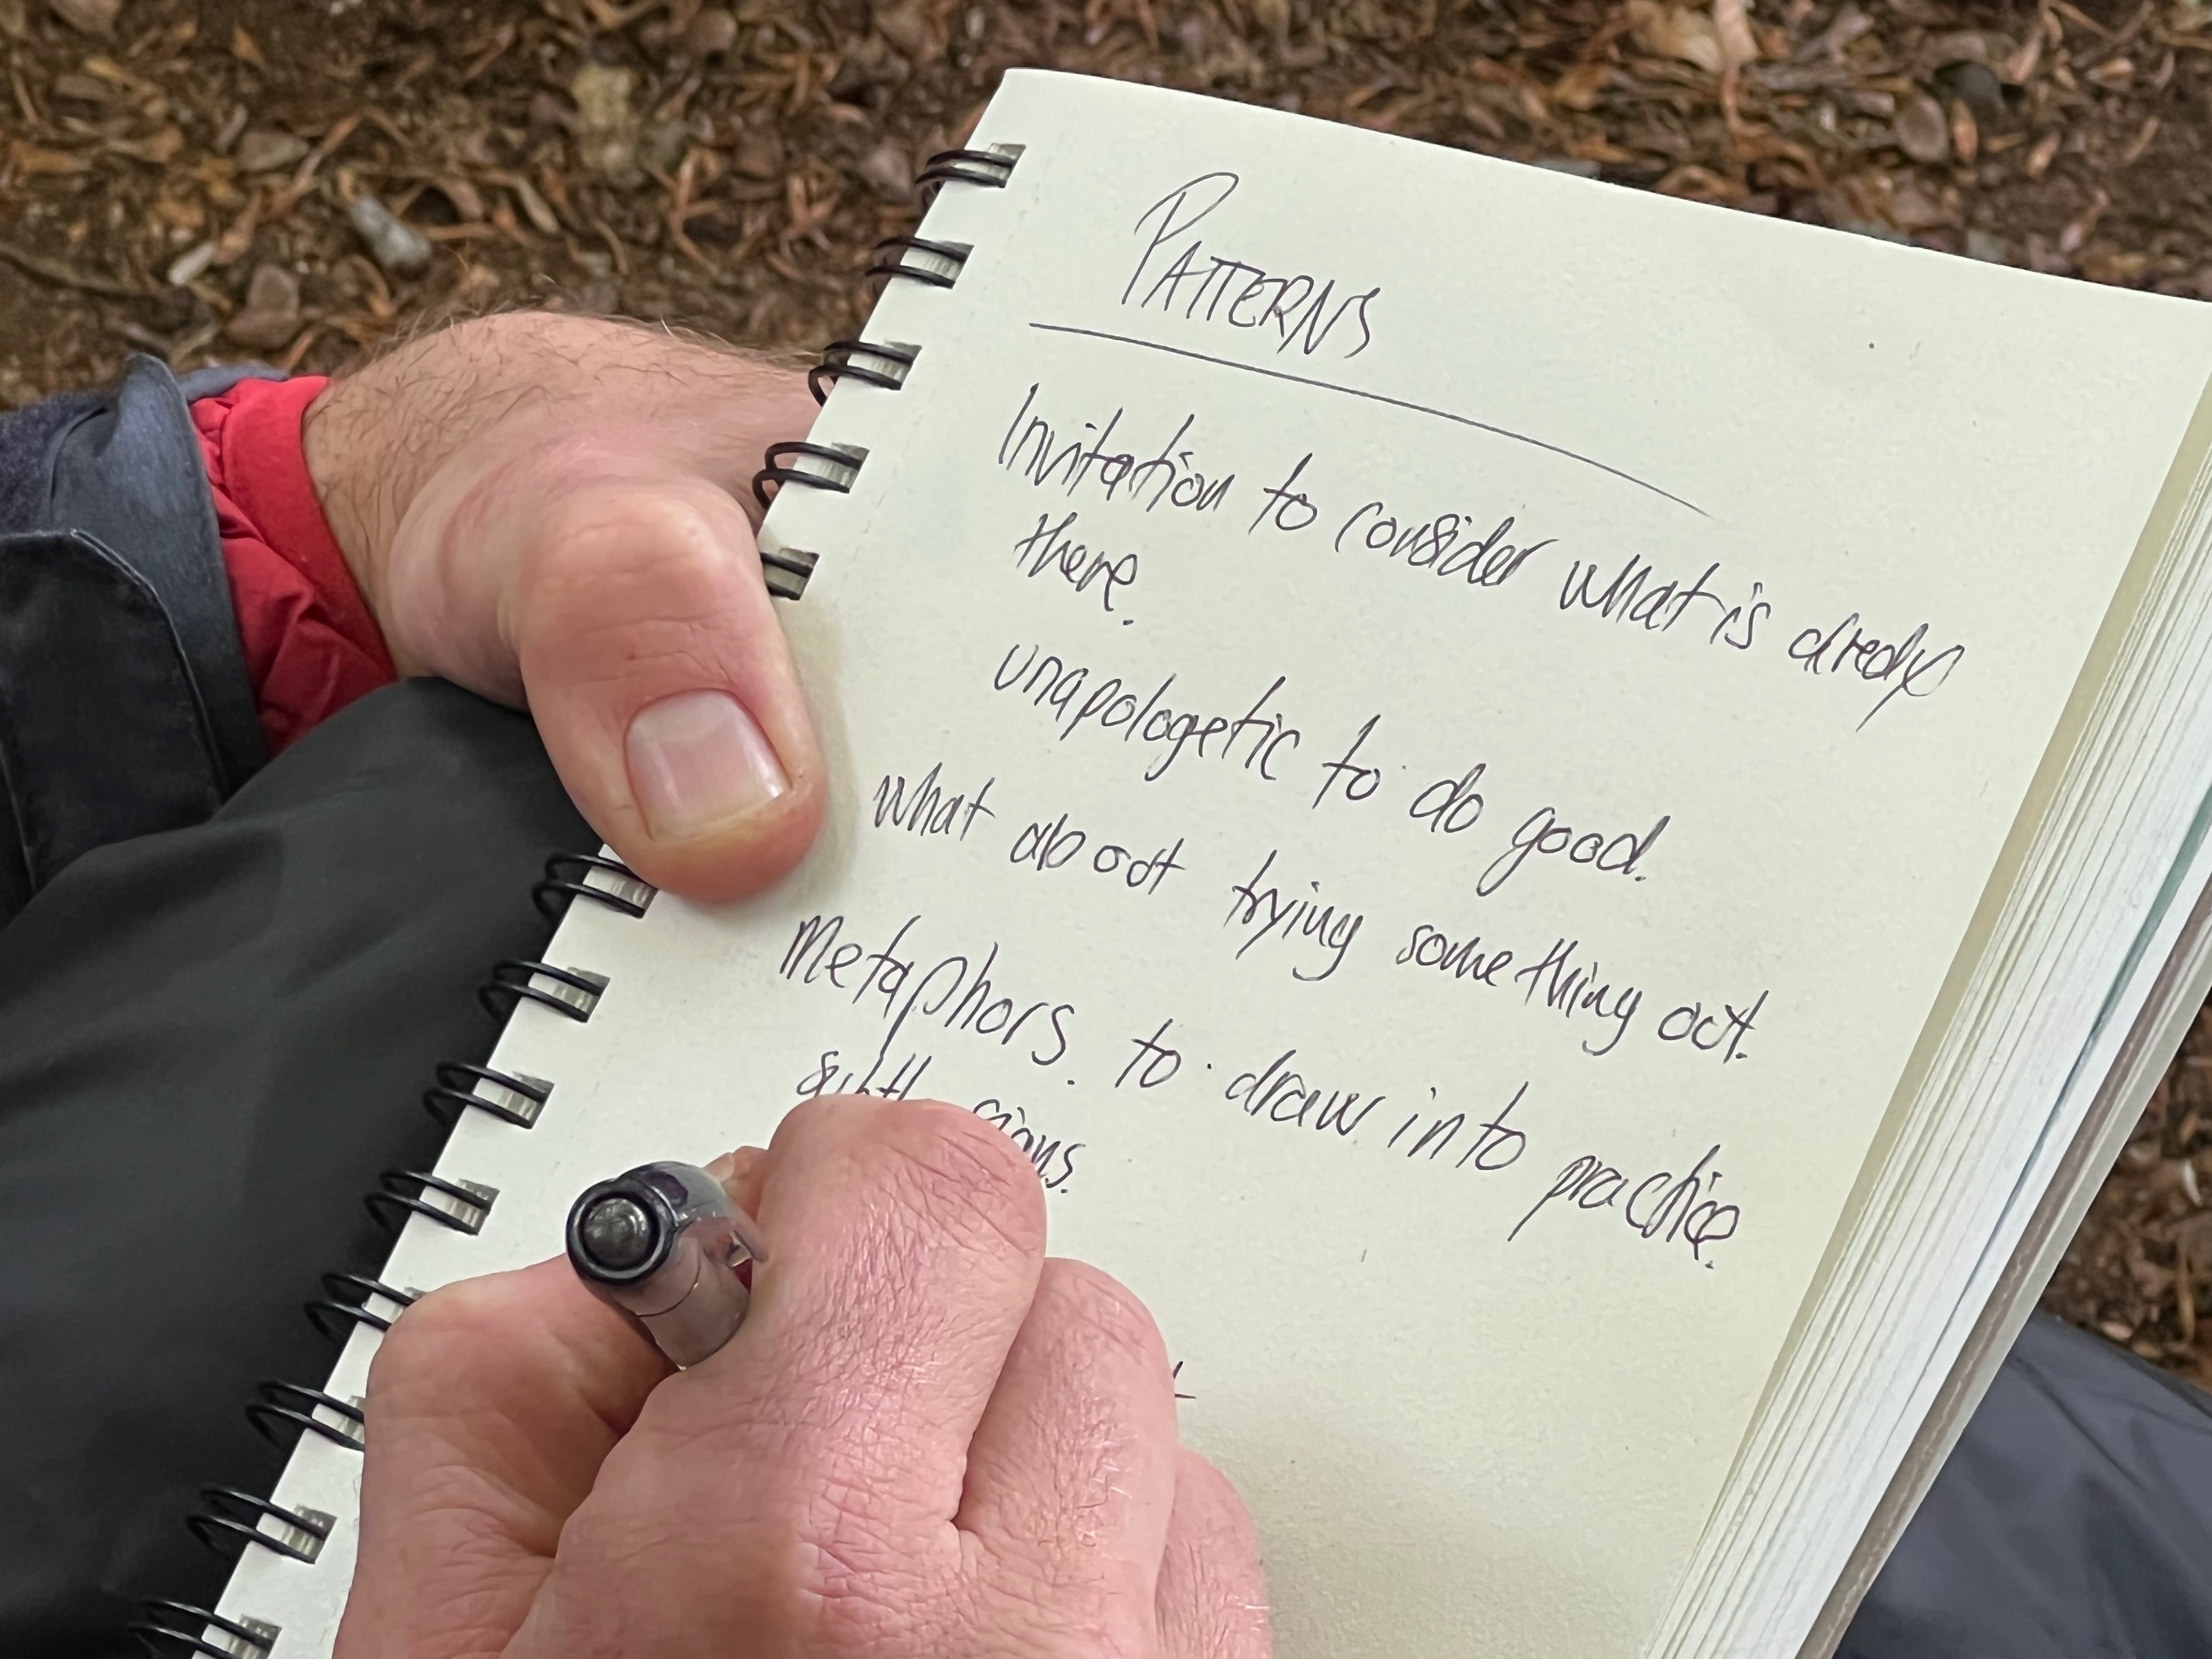 PATTERNS
Invitation to consider what is alredy
there.
unapologetic to do good.
what about trying something out.
Metaphors. to draw into practice.
signs.